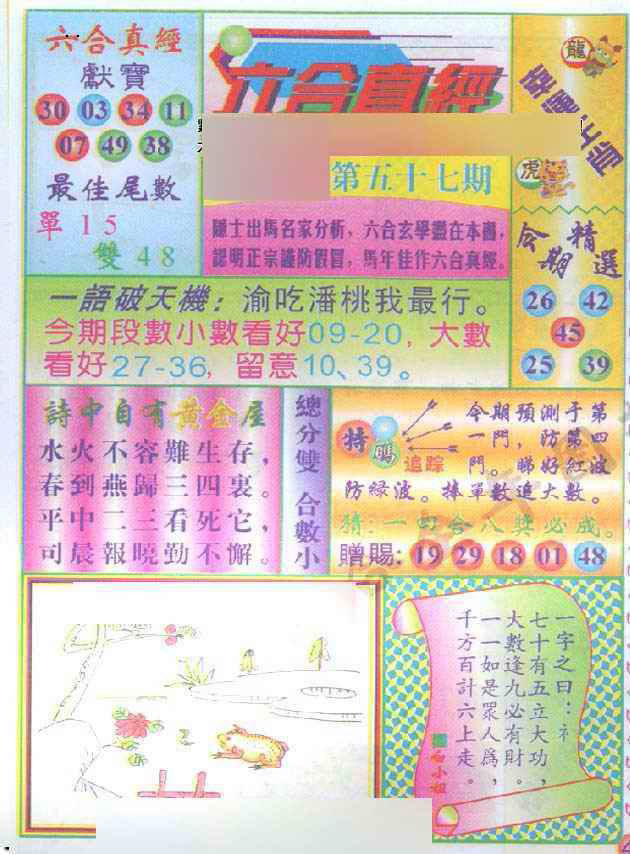 六合真經
獻寶
30 03 34 11
07 49 38
最佳尾數
單 1 5
雙 4 8
六合真經
第五十七期
隱士出馬名家分析，六合玄學盡在本圖，
認明正宗謹防假冒，馬年佳作六合真經。
龍
虎
今期精選
26 42
45
25 39
一語破天機：渝吃潘桃我最行。
今期段數小數看好09-20，大數
看好27-36，留意10、39。
詩中自有黃金屋
水火不容難生存，
春到燕歸三四裏。
平中二三看死它，
司晨報曉勤不懈。
總分雙 合數小
特碼
追踪
今期預測于第
一門，防第四
門。睇好紅波
防綠波。捧單數追大數。
猜：一四合八獎必成。
贈賜：19 29 18 01 48
一字之曰：礻
七十有五立大功，
大數逢九必有財。
一一如是眾人爲，
千方百計六上走。
白小姐